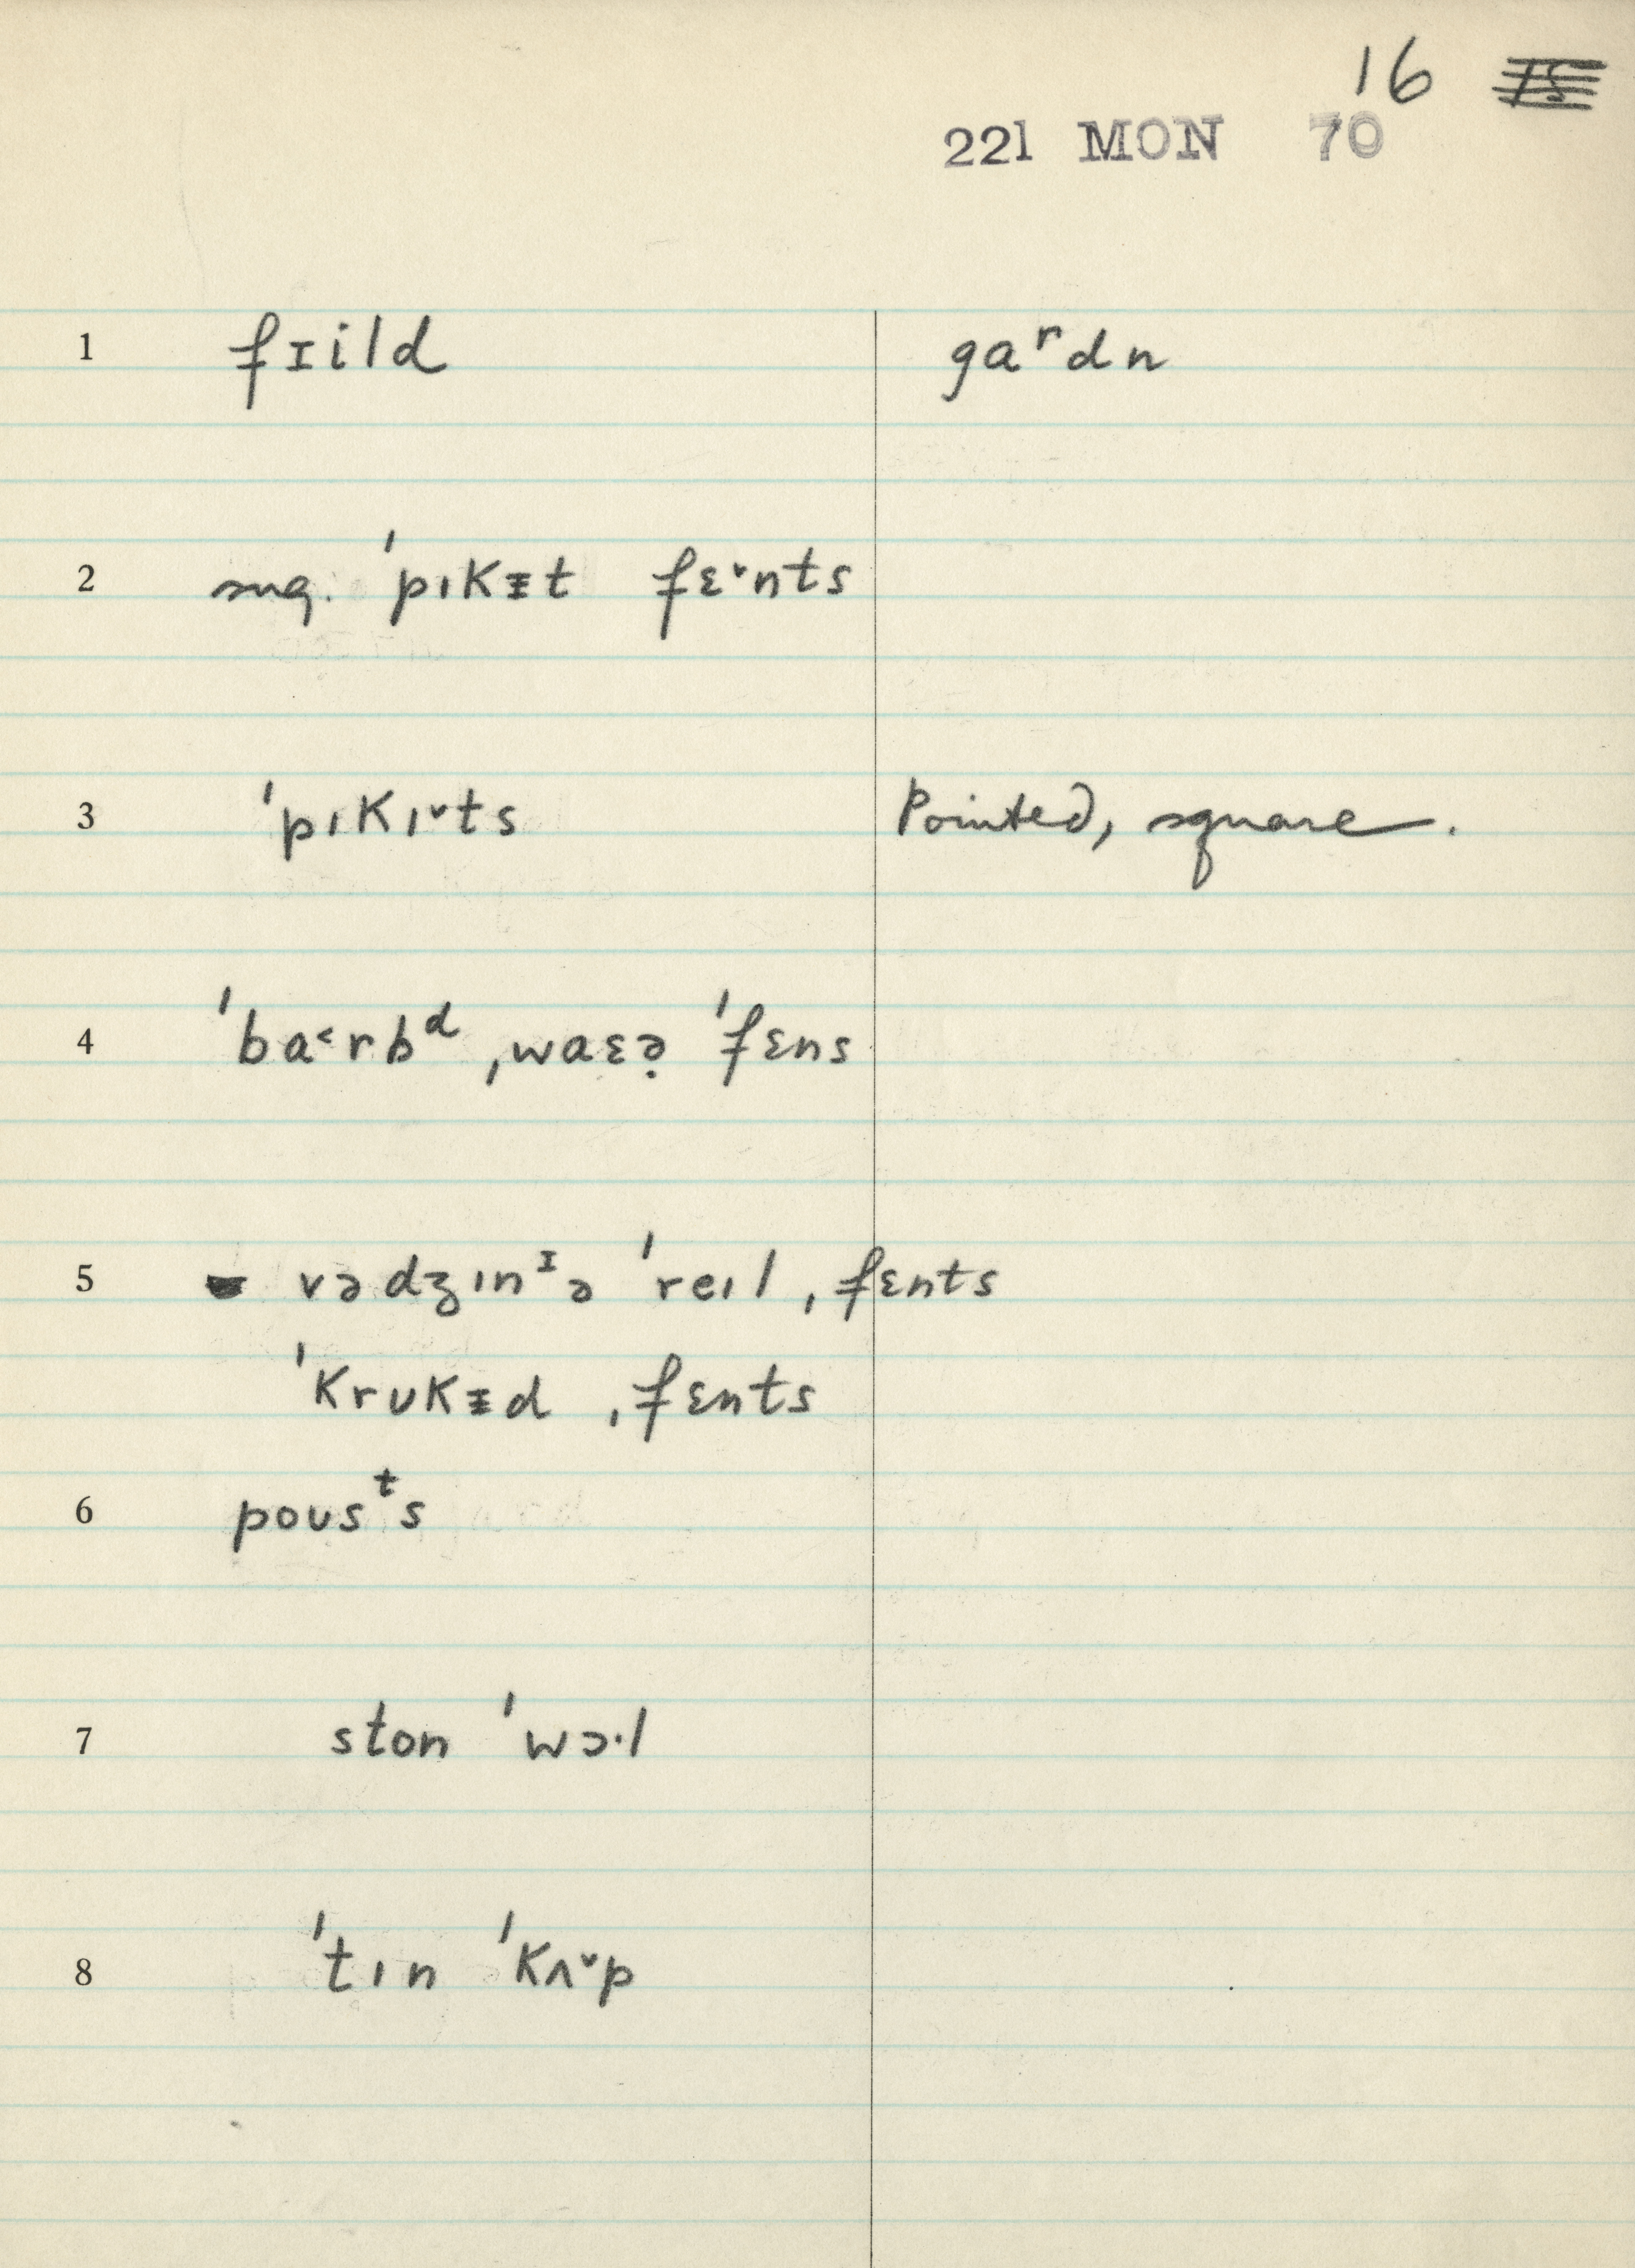 16 15
221 MON 70
1 fɪild gaʳdn
2 sug. ˈpıkᵻt fɛ˅nts
3 ˈpıkı˅ts Pointed, square.
4 ˈba˂rbᵈ ˌwaɛə̣ ˈfɛns
5 vədʒınᶦə ˈreıl ˌfɛnts
ˈkrʊkᵻd ˌfɛnts
6 poʊsᵗs
7 ston ˈwɔ·l
8 ˈtın ˈkʌ˅p